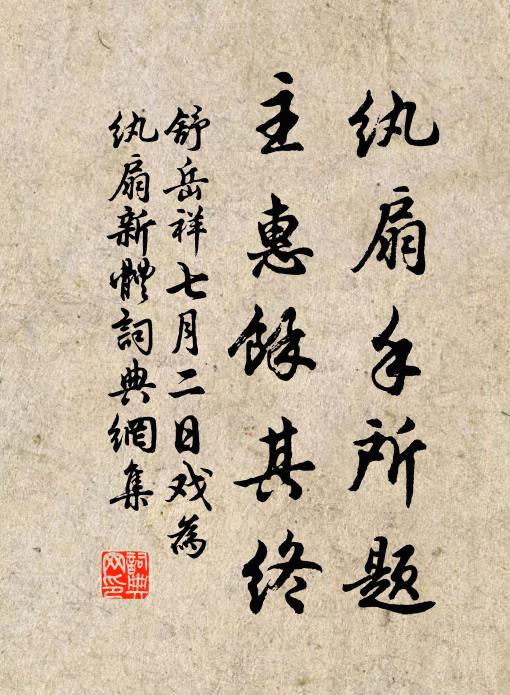 纨扇手所题
主惠餘其终
舒岳祥七月二日戏為
纨扇新體詞典網集
詞典网印